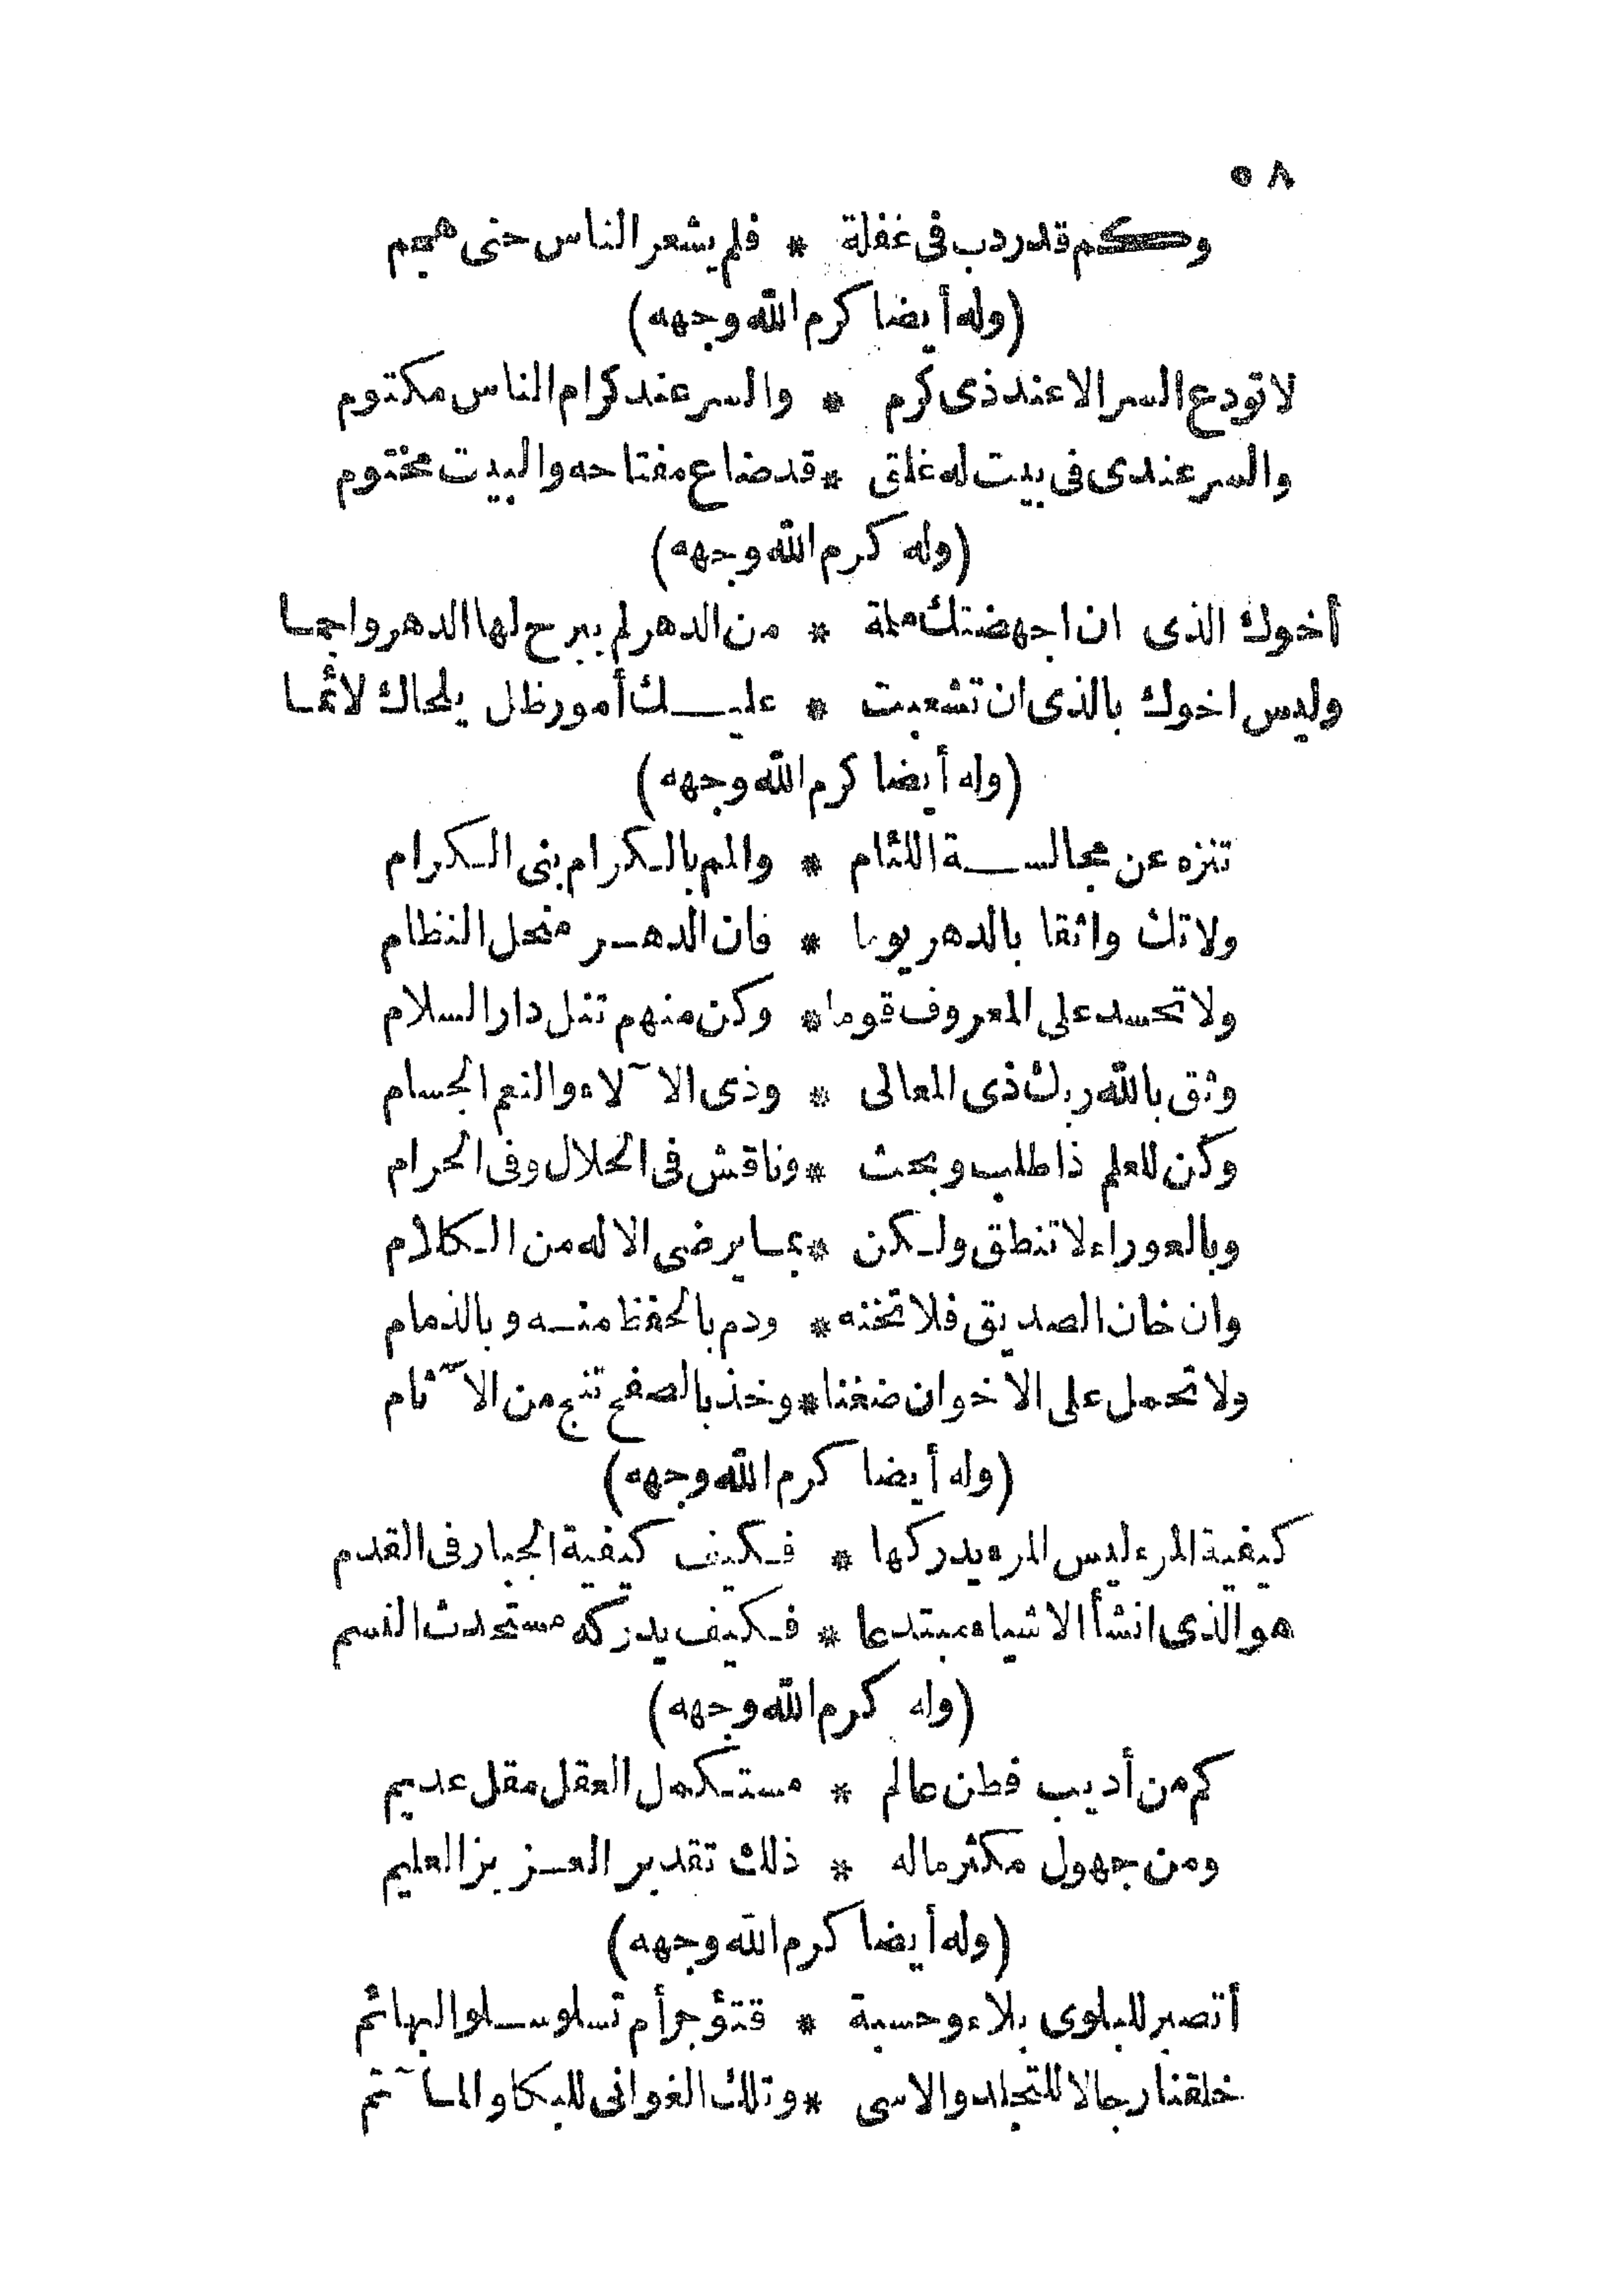 ٥٨
وكم قدر دب فى غفلة * فلم يشعر الناس حتى هجم
(وله أيضا كرم الله وجهه)
لا تودع السر الا عند ذى كرم * والسر عند كرام الناس مكتوم
والسر عندى فى بيت له غلق * قد ضاع مفتاحه والبيت مختوم
(وله كرم الله وجهه)
أخوك الذى ان اجهضتك ملمة * من الدهر لم يبرح لها الدهر واجما
وليس اخوك بالذى ان تشعبت * عليك أمور ظل يلحاك لائما
(وله أيضا كرم الله وجهه)
تنزه عن مجالسة اللئام * والمم بالكرام بنى الكرام
ولا تك واثقا بالدهر يوما * فان الدهر منحل النظام
ولا تحسد على المعروف قوما * وكن منهم تنل دار السلام
وثق بالله ربك ذى المعالى * وذى الآلاء والنعم الجسام
وكن للعلم ذا طلب وبحث * وناقش فى الحلال وفى الحرام
وبالعوراء لا تنطق ولكن * بما يرضى الاله من الكلام
وان خان الصديق فلا تخنه * ودم بالحفظ منه وبالذمام
ولا تحمل على الاخوان ضغنا * وخذ بالصفح تنج من الآثام
(وله أيضا كرم الله وجهه)
كيفية المرء ليس المرء يدركها * فكيف كيفية الجبار فى القدم
هو الذى انشأ الاشياء مبتدعا * فكيف يدركه مستحدث النسم
(وله كرم الله وجهه)
كم من أديب فطن عالم * مستكمل العقل مقل عديم
ومن جهول مكثر ماله * ذلك تقدير العزيز العليم
(وله أيضا كرم الله وجهه)
أتصبر للبلوى بلاء وحسبة * فتؤجر أم تسلو سلو البهائم
خلقنا رجالا للتجلد والاسى * وتلك الغوانى للبكا والمآتم